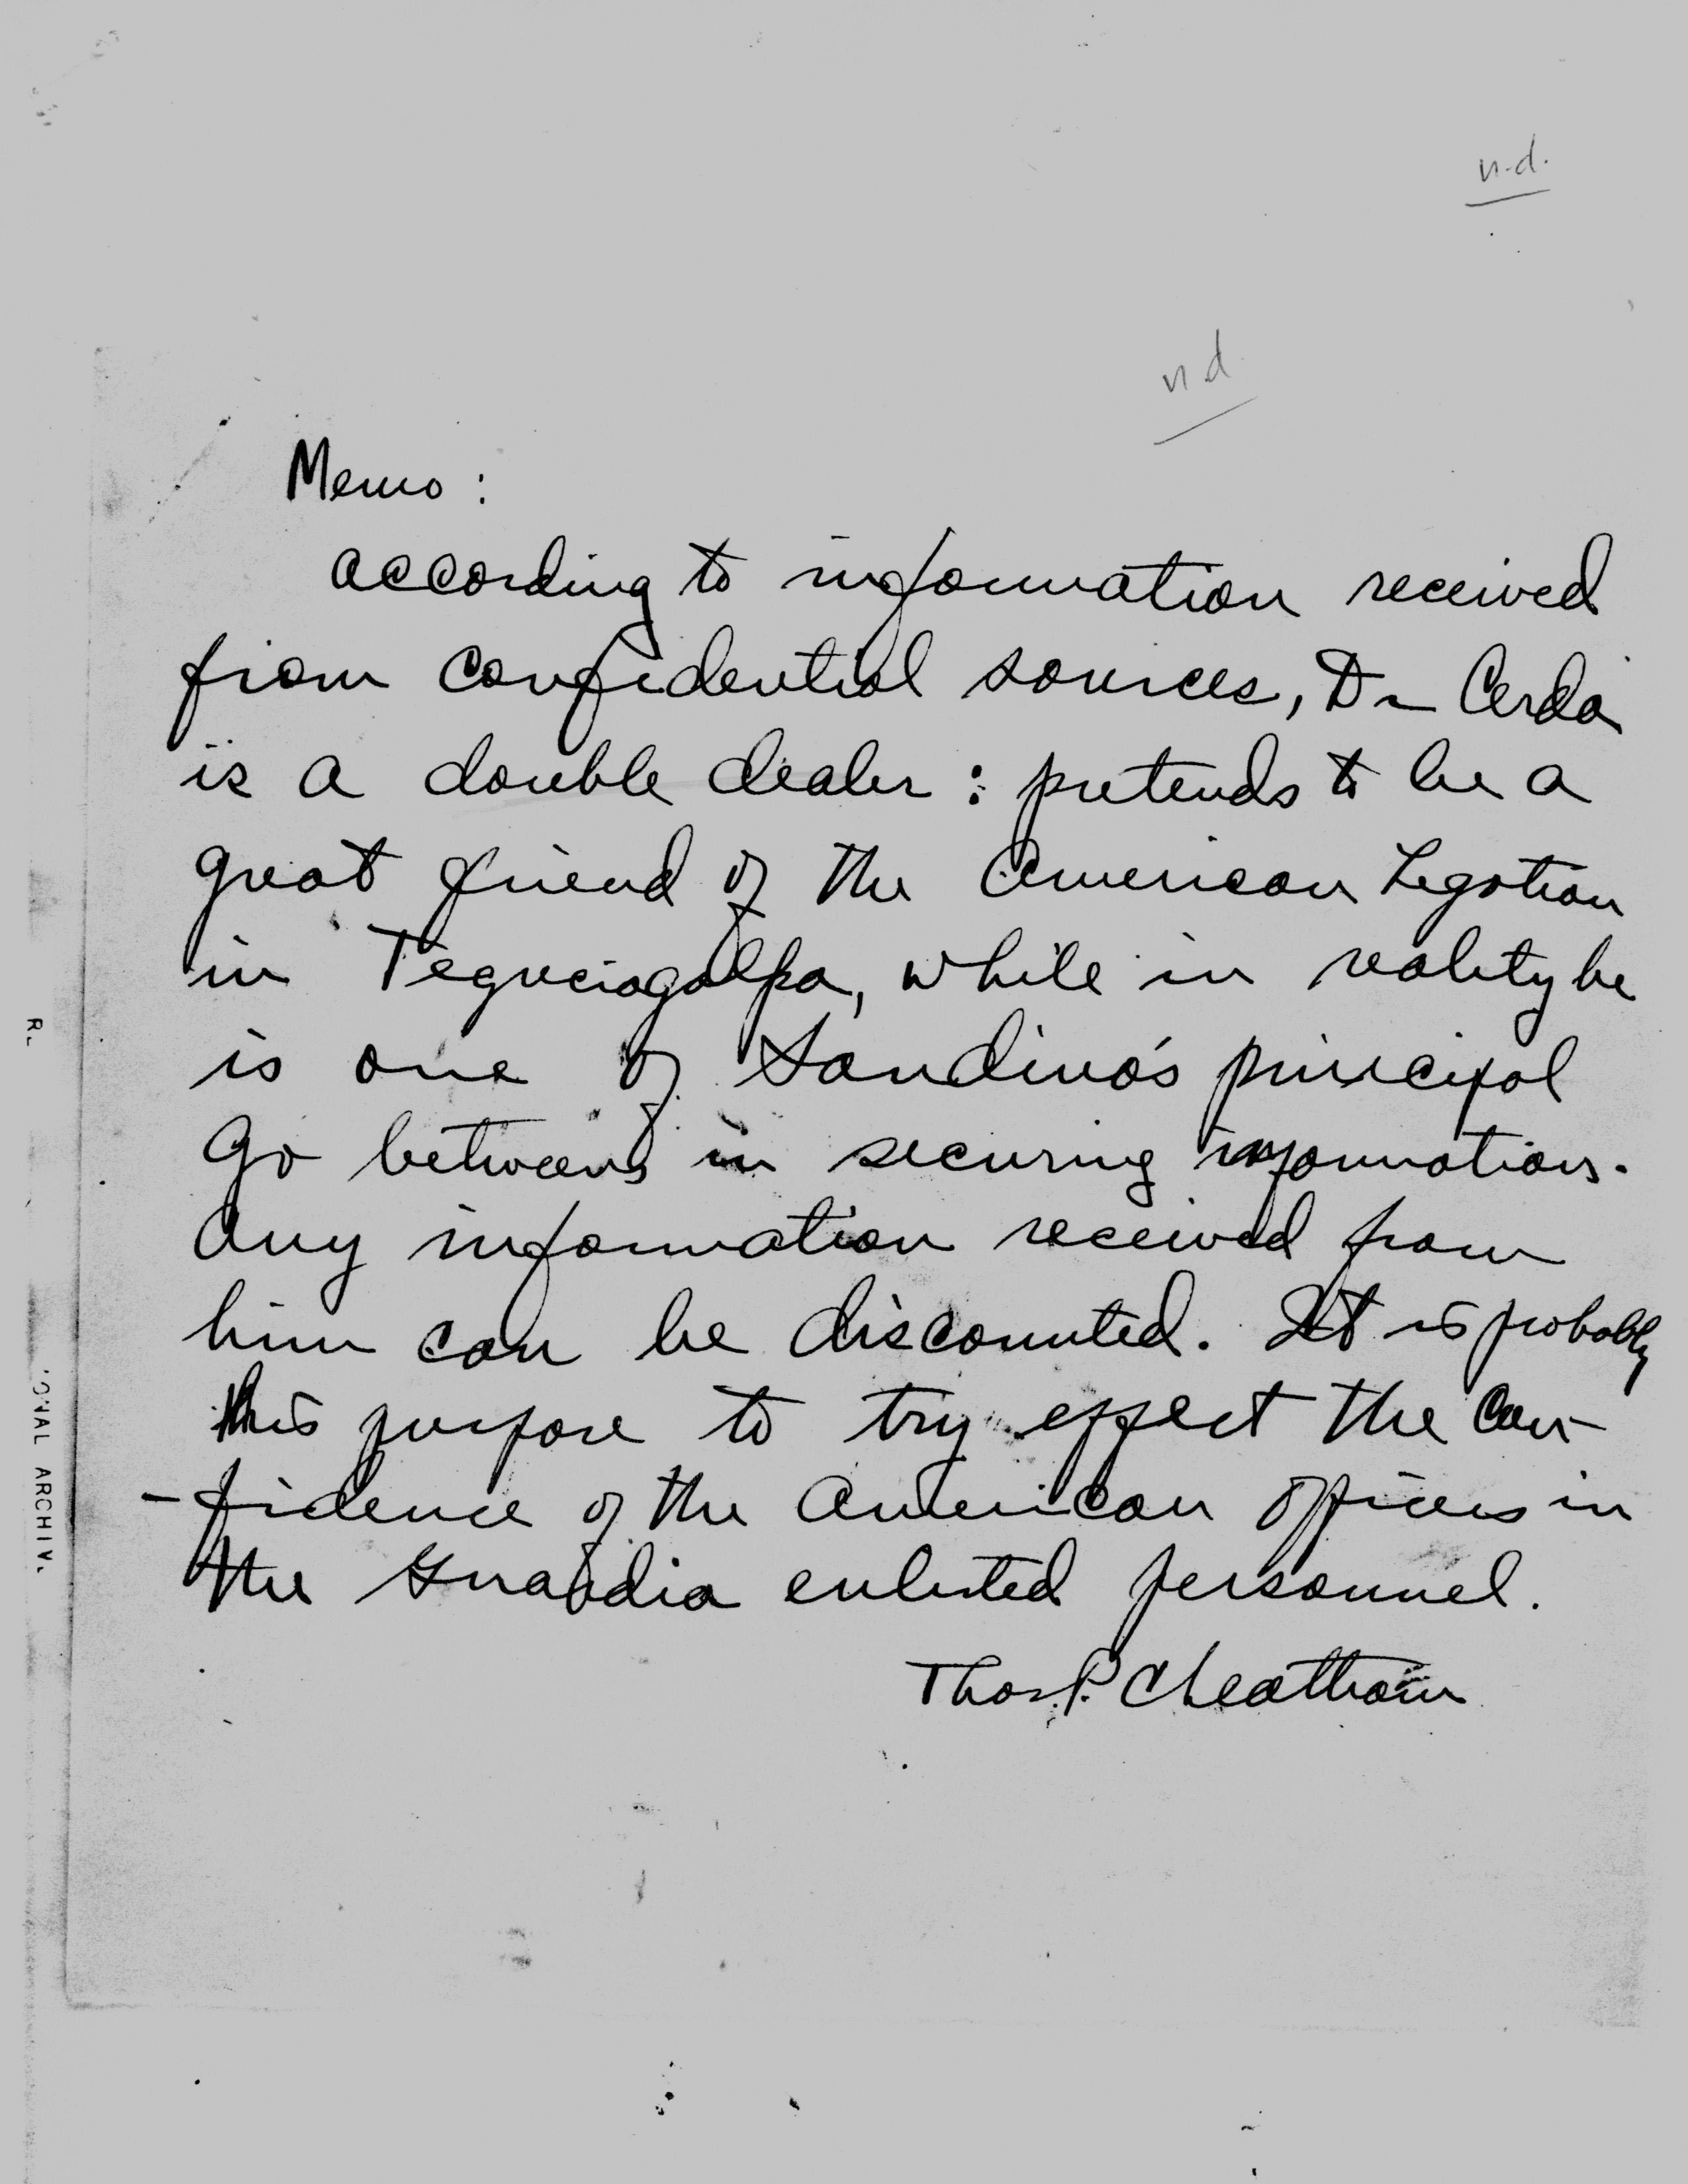 n.d.
n.d
Memo:
According to information received
from confidential sources, Dr Cerda
is a double dealer: pretends to be a
great friend of the American Legation
in Teguciagalpa, while in reality he
is one of Sandino's principal
go betweens in securing information.
Any information received from
him can be discounted. It is probably
his purpose to try effect the con-
-fidence of the American officers in
the Guardia enlisted personnel.
Thos. P. Cheatham
ONAL ARCHIV